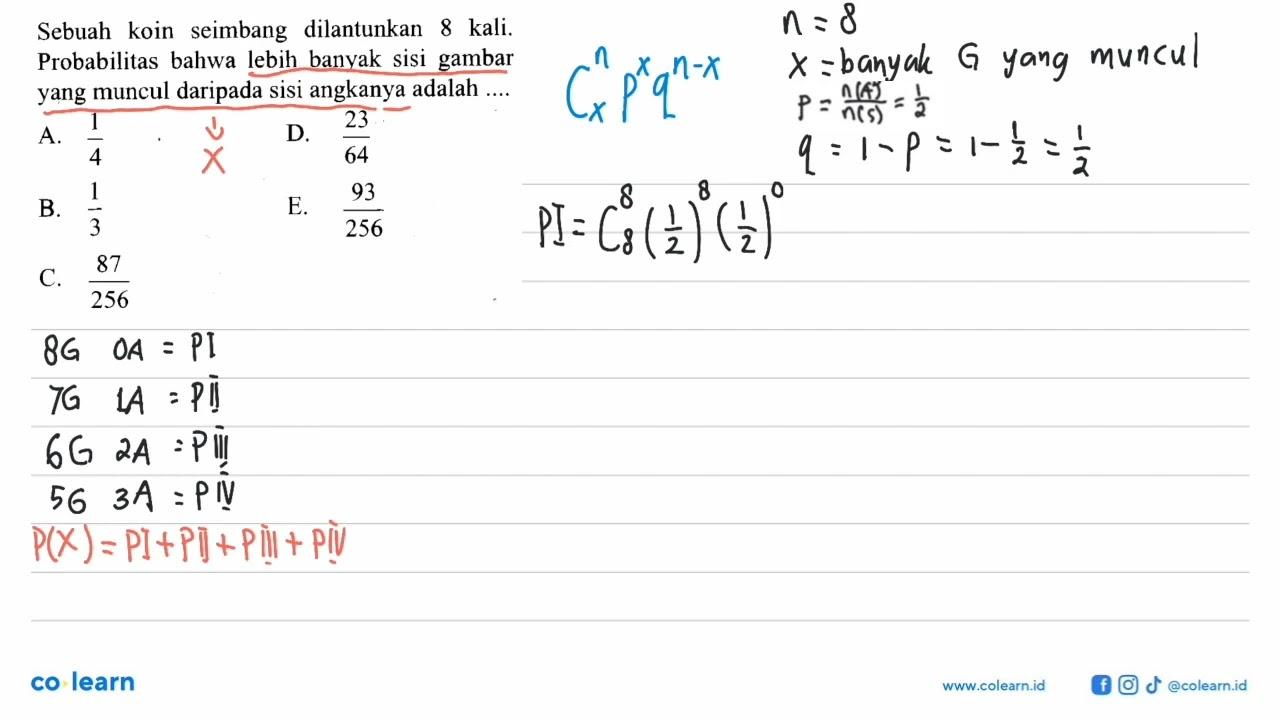 Sebuah koin seimbang dilantunkan 8 kali.
Probabilitas bahwa lebih banyak sisi gambar
yang muncul daripada sisi angkanya adalah ....
A. 1/4
D. 23/64
B. 1/3
E. 93/256
C. 87/256
X
C^n_x p^x q^(n-x)
n = 8
x = banyak G yang muncul
p = n(A)/n(S) = 1/2
q = 1 - p = 1 - 1/2 = 1/2
PI = C^8_8 (1/2)^8 (1/2)^0
8G 0A = PI
7G 1A = PII
6G 2A = PIII
5G 3A = PIV
P(X) = PI + PII + PIII + PIV
co learn
www.colearn.id
@colearn.id